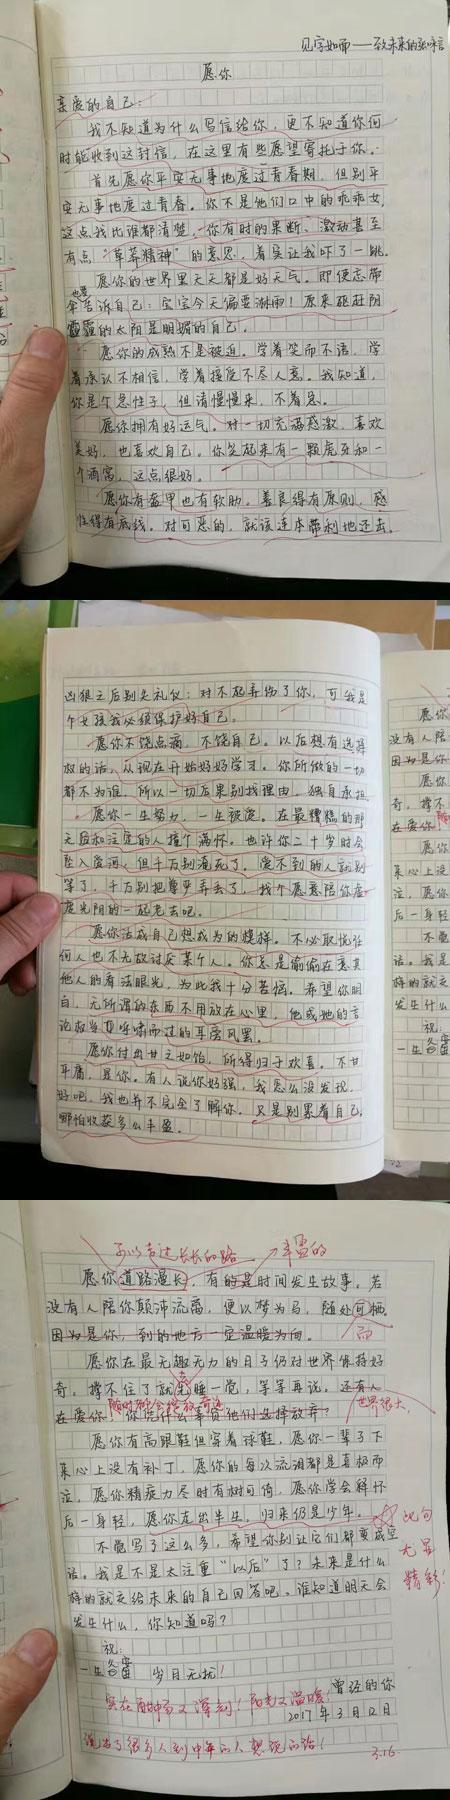 见字如面——致未来的张咏言
愿你
亲爱的自己:
我不知道为什么写信给你,更不知道你何
时能收到这封信,在这里有些愿望寄托于你。
首先愿你平安无事地度过青春期,但别平
安无事地度过青春。你不是他们口中的乖乖女,
这点我比谁都清楚,你有时的果断、激动甚至
有点“草莽精神”的意思,着实让我吓了一跳。
愿你的世界里天天都是好天气。即使忘带
伞也要告诉自己:宝宝今天偏要淋雨!原来碰赶阴
霾霾的太阳是明媚的自己。
愿你的成熟不是被迫。学着笑而不语,学
着承认不相信,学着接受不尽人意。我知道,
你是个急性子,但请慢慢来,不着急。
愿你拥有好运气。对一切充满感激,喜欢
美好,也喜欢自己。你笑起来有一颗虎牙和一
个酒窝,这点很好。
愿你有盔甲也有软肋。善良得有原则,感
性得有底线。对可恶的,就该连本带利地还击。
凶狠之后别失礼仪:对不起弄伤了你,可我是
个女孩我必须保护好自己。
愿你不饶点滴,不饶自己。以后想有选择
权的话,从现在开始好好学习。你所做的一切
都不为谁,所以一切后果别找理由,独自承担。
愿你一生努力,一生被爱。在最糟糕的那
天后和注定的人撞个满怀。也许你二十岁时会
坠入爱河,但千万别淹死了。爱不到的人就别
等了,千万别把尊严弄丢了,找个愿意陪你虚
度光阴的一起老去吧。
愿你活成自己想成为的模样。不必取悦任
何人也不无故讨厌某个人。你总是偷偷在意其
他人的看法眼光,为此我十分苦恼。希望你明
白,无所谓的东西不用放在心里,他或她的言
论权当耳呼啸而过的耳旁风罢。
愿你付出甘之如饴,所得归于欢喜。不甘
平庸,是你。有人说你好强,我怎么没发现,
好吧,我也并不完全了解你。只是别累着自己,
哪怕收获多么丰盈。
予以苦边长长的路 丰盈的
愿你道路漫长,有的是时间发生故事。若
没有人陪你颠沛流离,便以梦为马,随处可栖。
因为是你,到的地方一定温暖为向。
愿你在最无趣无力的日子仍对世界保持好
奇。撑不住了就先去睡一觉,等等再说。还有人
在爱你,你凭什么辜负他们选择放弃?
随时都会接放奇迹
世界很大,
愿你有高跟鞋但穿着球鞋,愿你一辈子下
来心上没有补丁,愿你的每次流泪都是喜极而
泣,愿你精疲力尽时有树可倚,愿你学会释怀
后一身轻,愿你走出半生,归来仍是少年。
此句
尤显
精彩!
不觉写了这么多,希望你别让它们都变成空
话。我是不是太注重“以后”了?未来是什么
样的就交给未来的自己回答吧。谁知道明天会
发生什么,你知道吗?
祝:
一生备富 岁月无扰!
曾经的你
2017年3月12日
实在酣畅又深刻!阳光又温暖!
说出了很多人到中年的人想说的话!
3.16